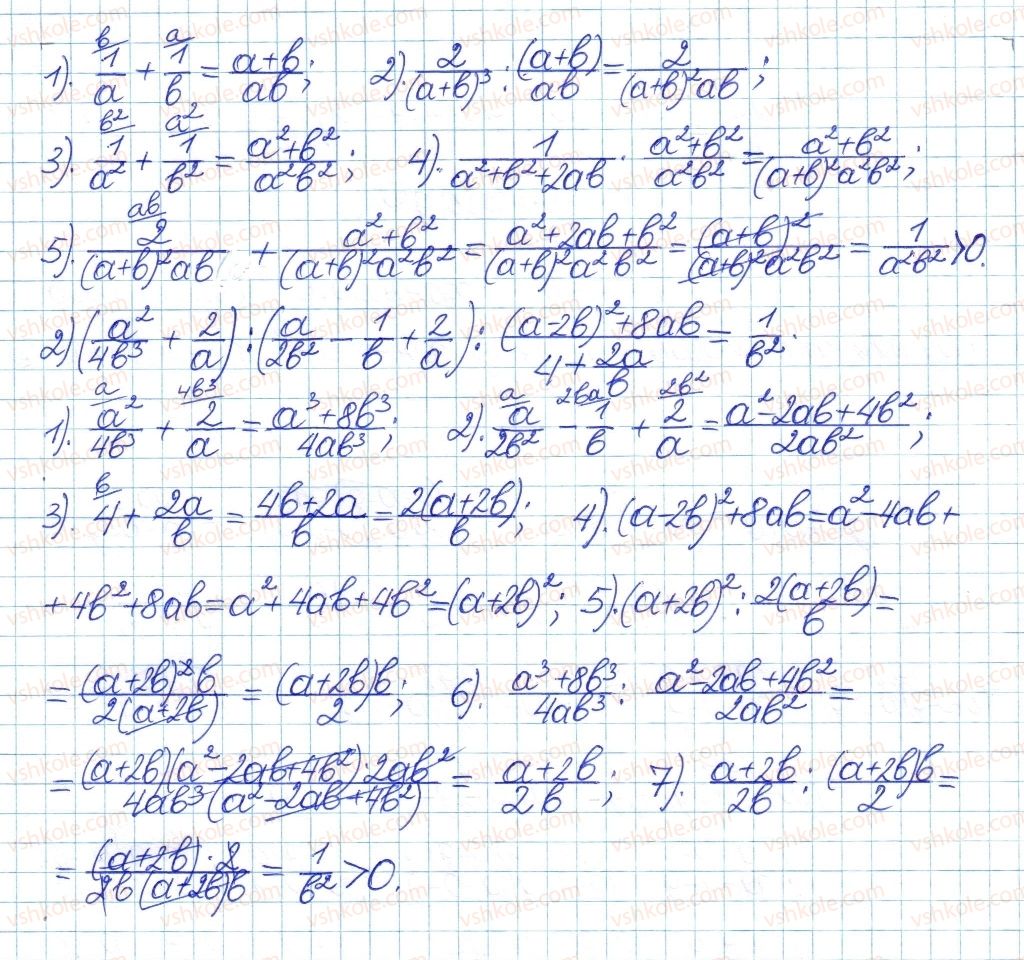 1). \frac{1}{a}^{b} + \frac{1}{b}^{a} = \frac{a+b}{ab}; 2). \frac{2}{(a+b)^3} : \frac{(a+b)}{ab} = \frac{2}{(a+b)^2ab};
3). \frac{1}{a^2}^{b^2} + \frac{1}{b^2}^{a^2} = \frac{a^2+b^2}{a^2b^2}; 4). \frac{1}{a^2+b^2+2ab} · \frac{a^2+b^2}{a^2b^2} = \frac{a^2+b^2}{(a+b)^2a^2b^2};
5). \frac{2}{(a+b)^2ab}^{ab} + \frac{a^2+b^2}{(a+b)^2a^2b^2} = \frac{a^2+2ab+b^2}{(a+b)^2a^2b^2} = \frac{(a+b)^2}{(a+b)^2a^2b^2} = \frac{1}{a^2b^2} > 0.
2) (\frac{a^2}{4b^3} + \frac{2}{a}) : (\frac{a}{2b^2} - \frac{1}{b} + \frac{2}{a}) : \frac{(a-2b)^2+8ab}{4+\frac{2a}{b}} = \frac{1}{b^2}.
1). \frac{a^2}{4b^3}^{a} + \frac{2}{a}^{4b^3} = \frac{a^3+8b^3}{4ab^3}; 2). \frac{a}{2b^2}^{a} - \frac{1}{b}^{2ba} + \frac{2}{a}^{2b^2} = \frac{a^2-2ab+4b^2}{2ab^2};
3). 4^{b} + \frac{2a}{b} = \frac{4b+2a}{b} = \frac{2(a+2b)}{b}; 4). (a-2b)^2+8ab=a^2-4ab+
+4b^2+8ab=a^2+4ab+4b^2=(a+2b)^2; 5). (a+2b)^2 : \frac{2(a+2b)}{b} =
= \frac{(a+2b)^2b}{2(a+2b)} = \frac{(a+2b)b}{2}; 6). \frac{a^3+8b^3}{4ab^3} : \frac{a^2-2ab+4b^2}{2ab^2} =
= \frac{(a+2b)(a^2-2ab+4b^2)·2ab^2}{4ab^3(a^2-2ab+4b^2)} = \frac{a+2b}{2b}; 7). \frac{a+2b}{2b} : \frac{(a+2b)b}{2} =
= \frac{(a+2b)·2}{2b(a+2b)b} = \frac{1}{b^2} > 0.